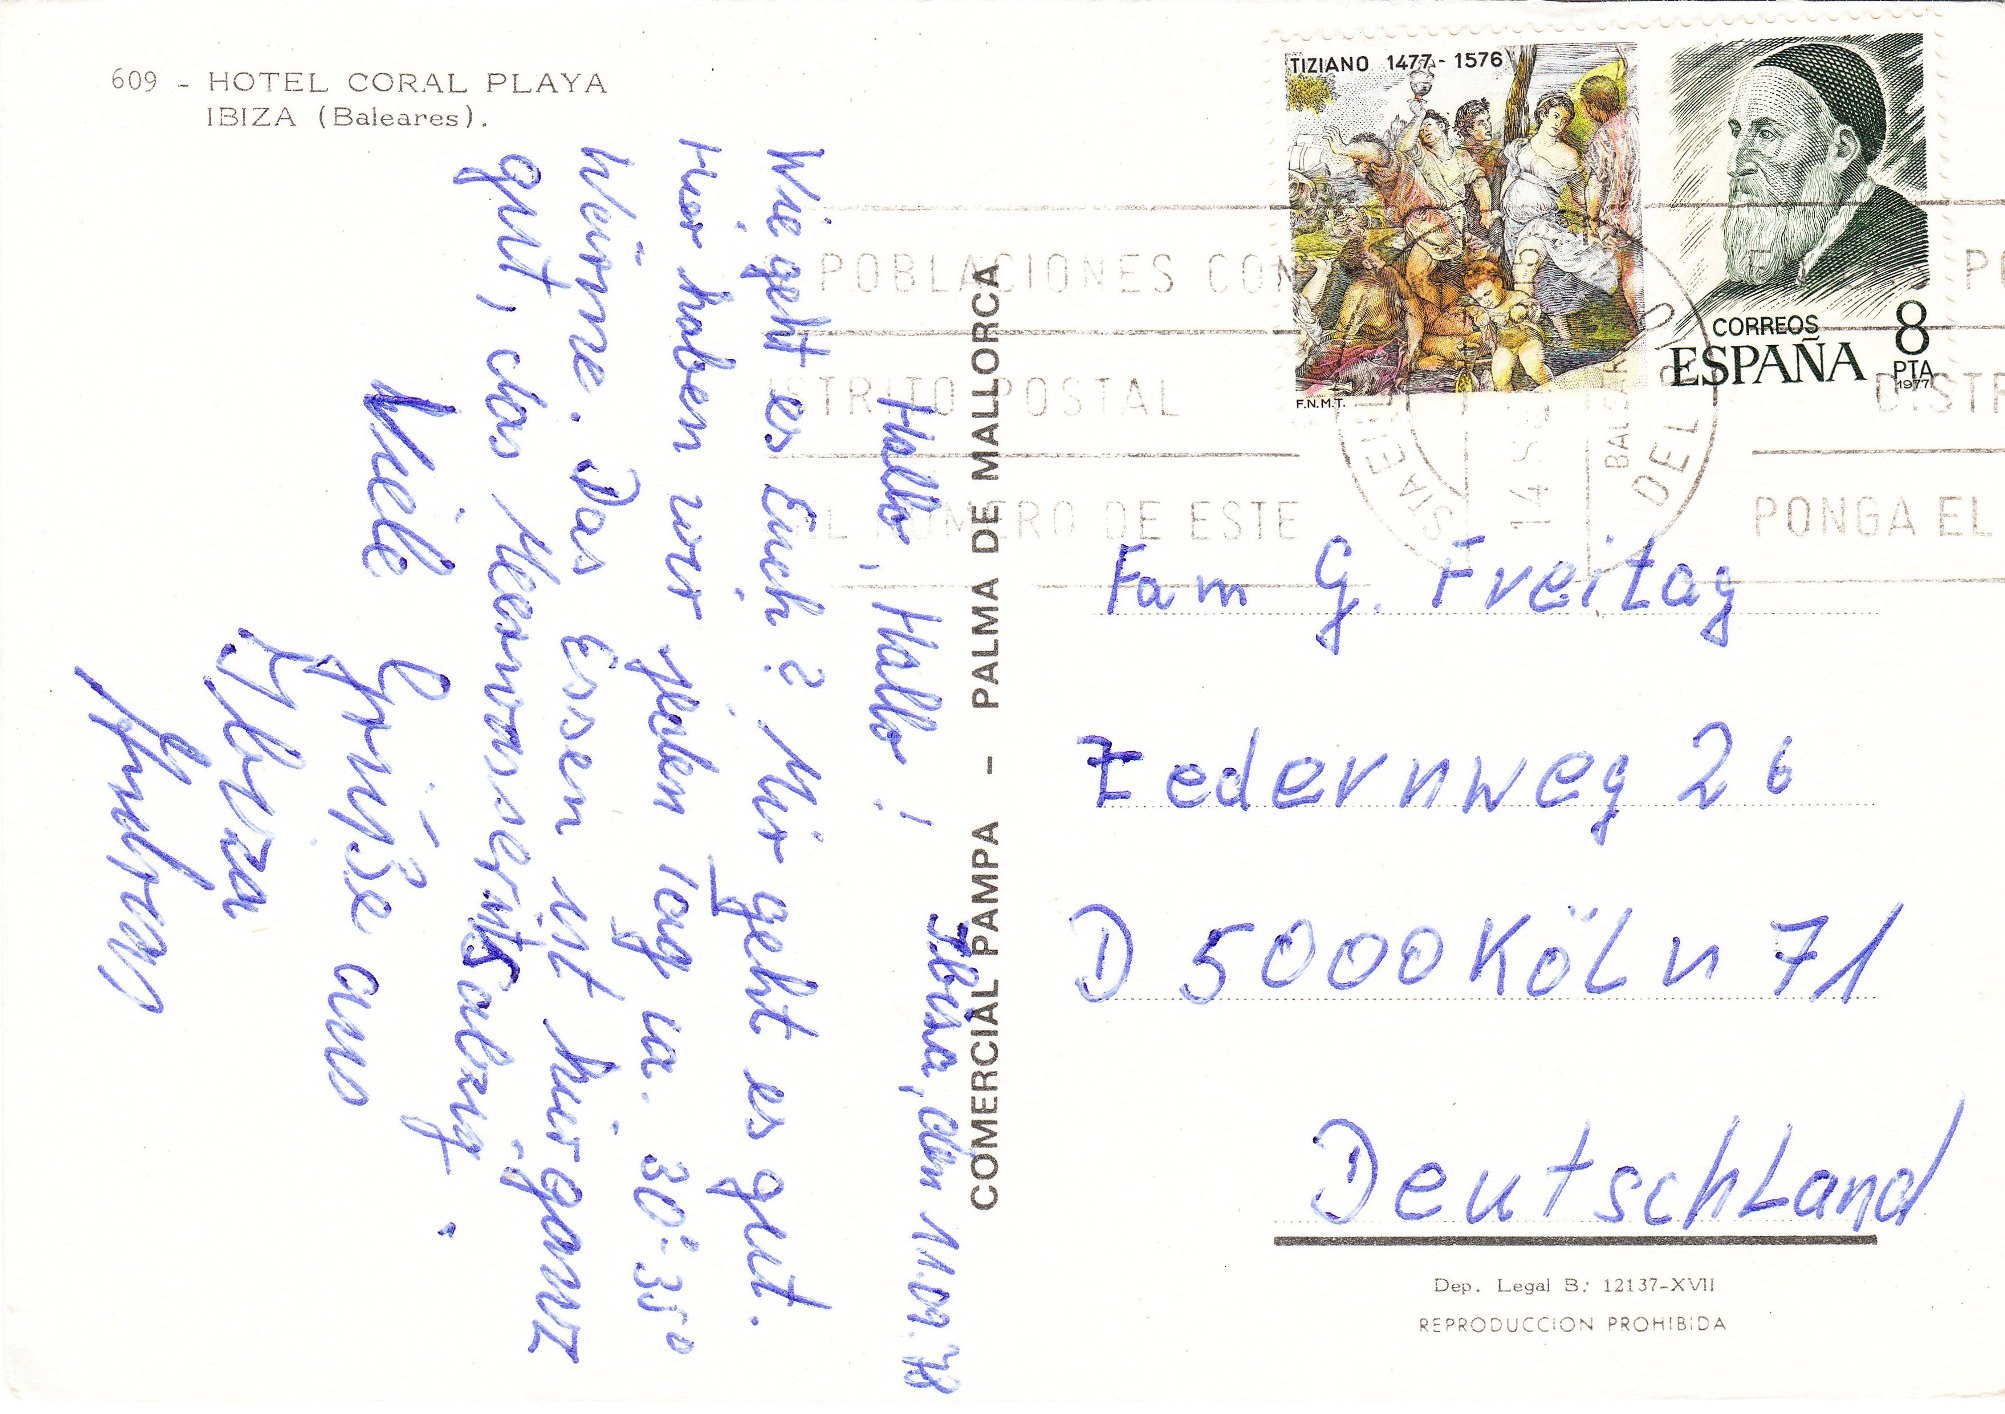 609 - HOTEL CORAL PLAYA
IBIZA (Baleares).
Ibiza, den 11.09.78
Hallo, Hallo!
Wie geht es Euch? Mir geht es gut.
Hier haben wir jeden Tag ca. 30°-35°
Wärme. Das Essen ist hier ganz
gut, das Meerwasser ist salzig.
Viele Grüße aus
Ibiza
COMERCIAL PAMPA - PALMA DE MALLORCA
TIZIANO 1477 - 1576
F.N.M.T.
CORREOS
ESPAÑA
8
PTA
1977
POBLACIONES CON
STRITO POSTAL
EL NUMERO DE ESTE
PONGA EL
14 S
DEL
Fam G. Freitag
Zedernweg 26
D 5000 KÖLn 71
Deutschland
Dep. Legal B: 12137-XVII
REPRODUCCION PROHIBIDA